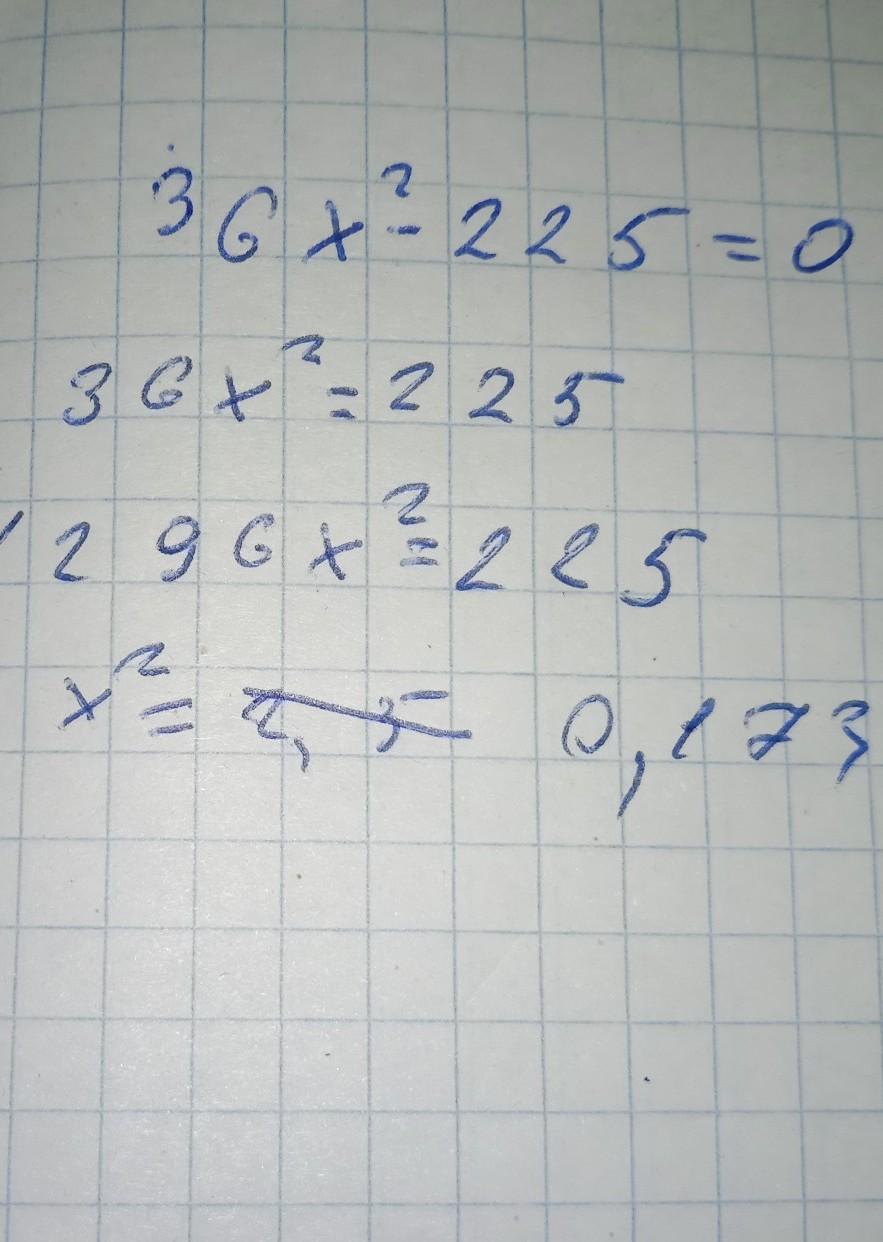 36x²-225=0
36x²=225
1296x²=225
x²= 2,5 0,173